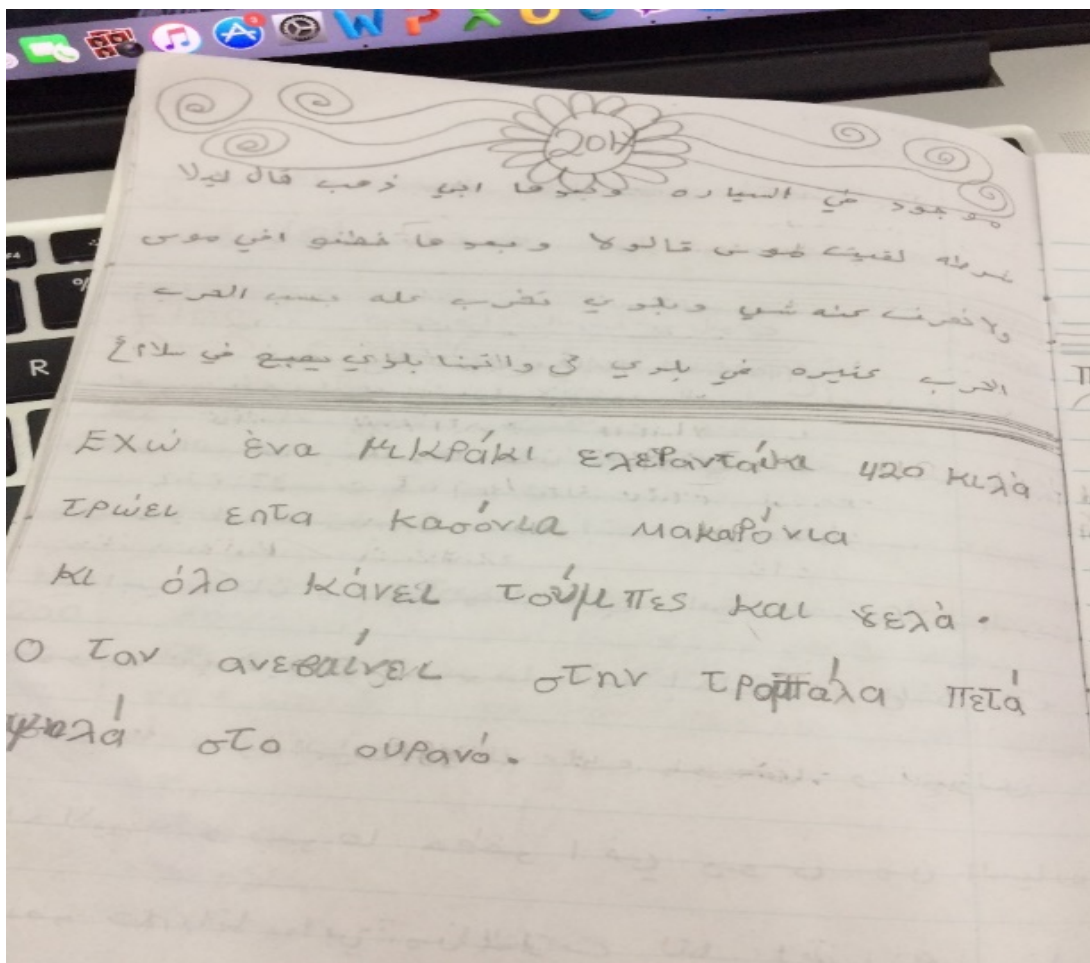 2017
موجود في السياره وبعدها ابي ذهب قال ليلا
شرطه لقيت موس قالولا وبعدها خطفو اخي موس
ولا نعرف عنه شي وبلدي تضرب عله بسب الحرب
الحرب كثيره في بلدي في واتمنا بلدي يصبح في سلام
Εχώ ένα μικράκι ελεφαντάκι 420 κιλά
τρώει επτα κασόνια μακαρόνια
κι όλο κάνει τούμπες και γελά.
Ο ταν ανεβαίνει στην τραμπάλα πετά
ψηλά στο ουρανό.
R